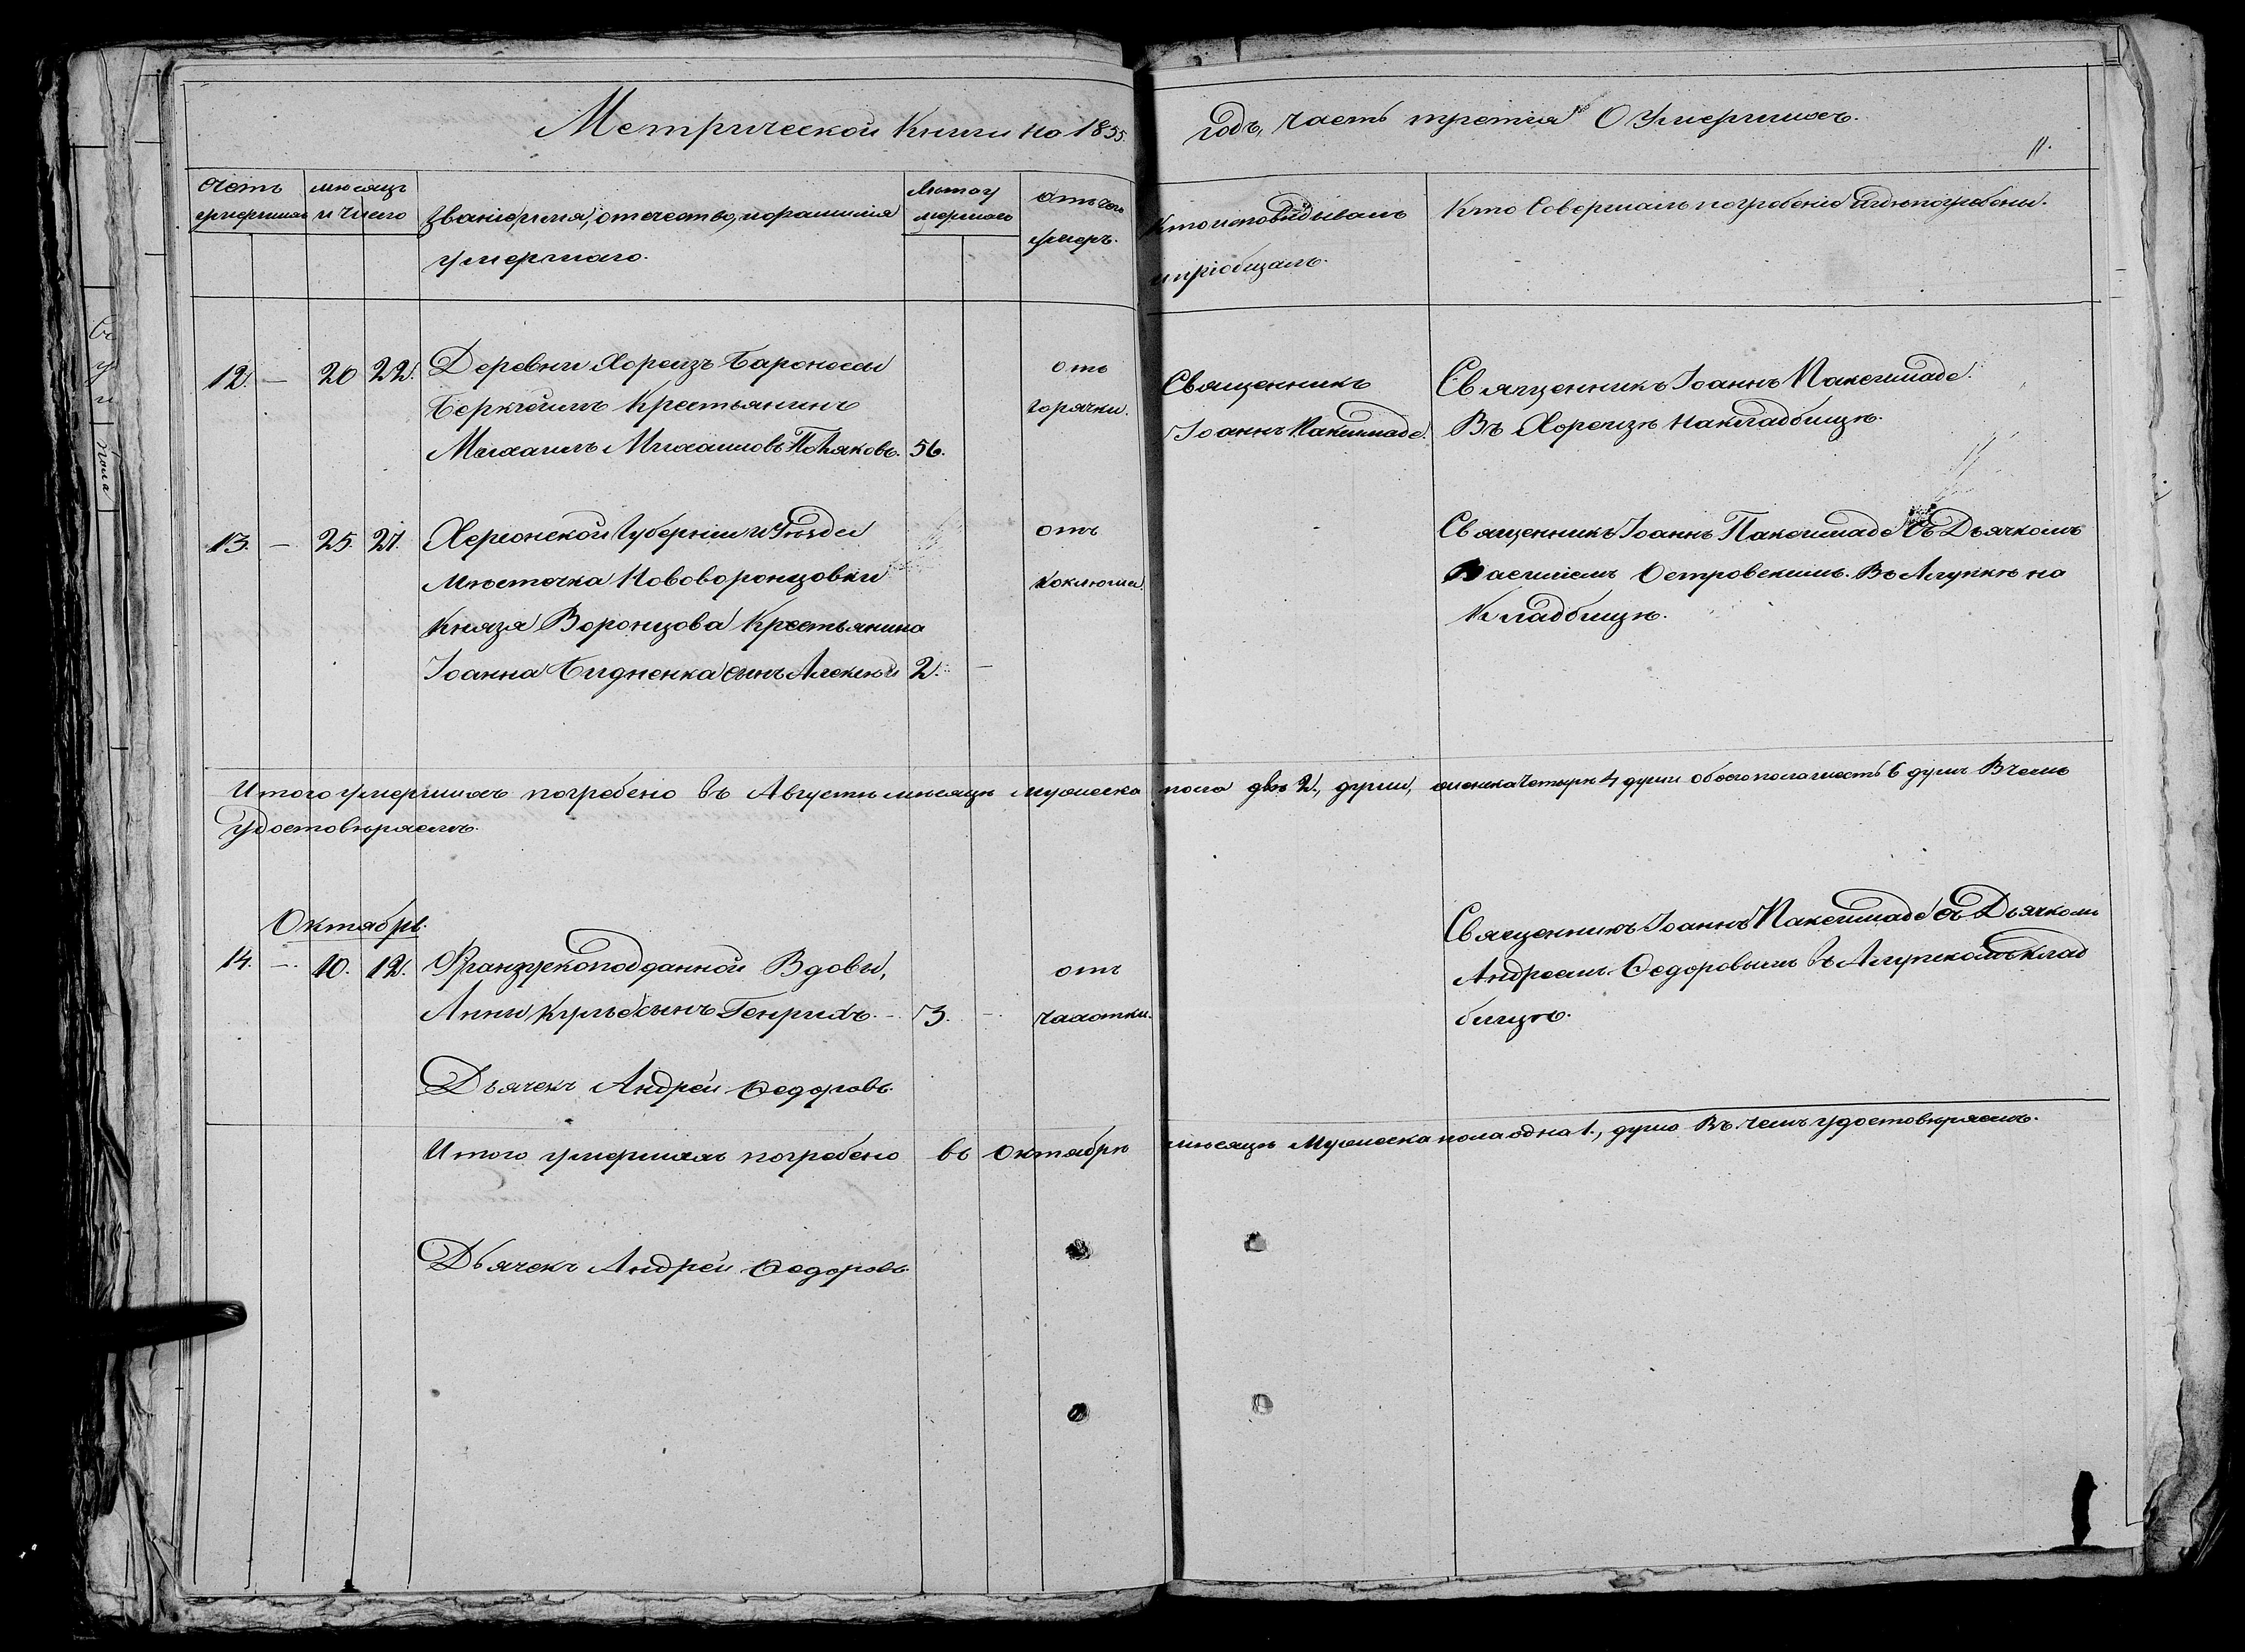 Метрической Книги на 1855. годъ, часть третія О Умершихъ.
11.
Счетъ умершихъ
мѣсяцъ и число
Званіе, имя, отечество, и фамилія умершаго.
Лѣта умершаго
Отъ чего умеръ.
Кто исповѣдывалъ и пріобщалъ.
Кто Совершалъ погребеніе и гдѣ погребены.
12. — 20 22. Деревни Хореизъ Баронессы
Беркгеимъ Крестьянинъ
Михаилъ Михаиловъ 56.
отъ
горячки.
Священникъ
Іоаннъ Паксимаде.
Священникъ Іоаннъ Паксимаде.
Въ Хореизѣ на кладбищѣ.
13. — 25. 27. Херсонской Губерніи и Уѣзда
мѣстечка Нововоронцовки
Князя Воронцова Крестьянина
Іоанна Бидненка сынъ Алексѣй 2. —
отъ
коклюша.
Священникъ Іоаннъ Паксимаде съ Дьячкомъ
Василіемъ Островскимъ. Въ Алупкѣ на
Кладбищѣ.
Итого умершихъ погребено въ Августѣ мѣсяцѣ мужеска пола двѣ 2, души, женска четыри 4 души обоего пола шесть 6 душъ В чемъ
Удостовѣряемъ.
Октябрь.
14. — 10. 12. Французскоподданной Вдовы,
Анны Кулье сынъ Генрихъ. — 3. —
отъ
чахотки.
Священникъ Іоаннъ Паксимаде съ Дьячкомъ
Андреемъ Ѳедоровымъ въ Алупскомъ клад
бищѣ.
Дьячекъ Андрей Ѳедоровъ.
Итого умершихъ погребено въ Октябрѣ мѣсяцѣ Мужеска пола одна 1., душа Въ чемъ удостовѣряемъ.
Дьячекъ Андрей Ѳедоровъ.